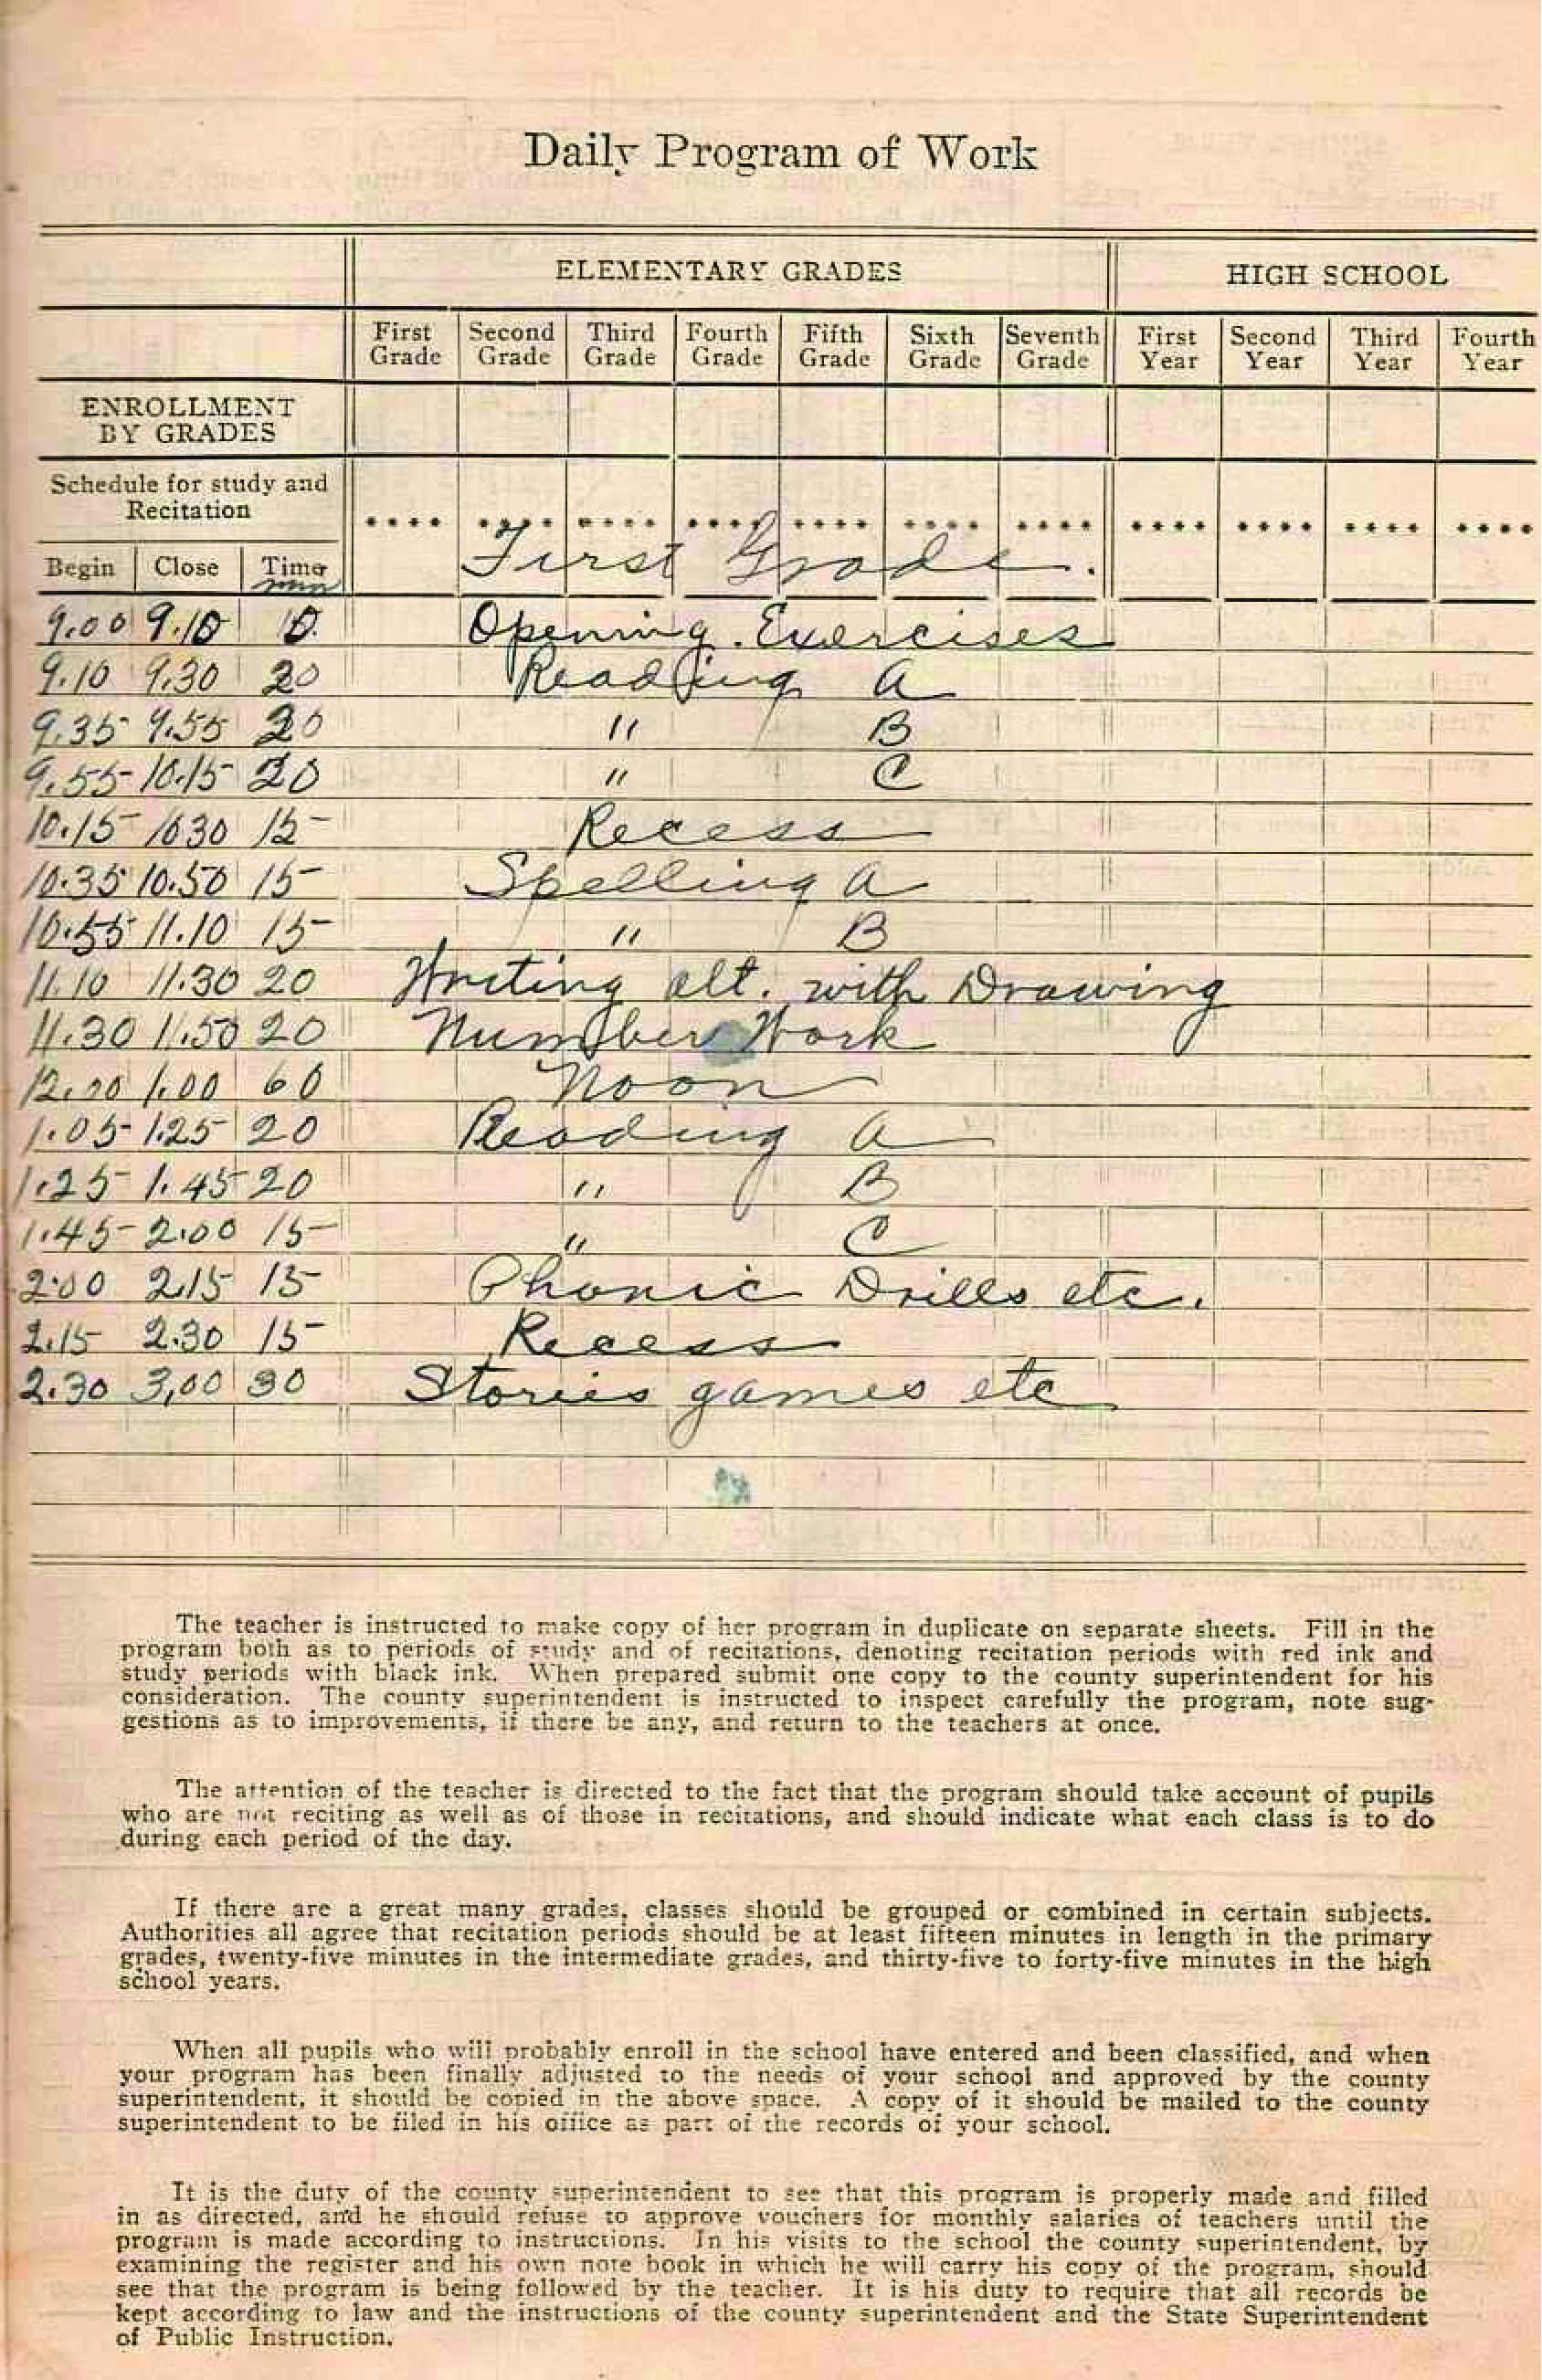 Daily Program of Work
ELEMENTARY GRADES HIGH SCHOOL
First Grade Second Grade Third Grade Fourth Grade Fifth Grade Sixth Grade Seventh Grade First Year Second Year Third Year Fourth Year
ENROLLMENT
BY GRADES
Schedule for study and
Recitation
.... .... .... .... .... .... .... .... .... .... ....
Begin Close Time First Grade.
min
9.00 9.10 10. Opening Exercises
9.10 9.30 20 Reading A
9.35 9.55 20 " B
9.55 10.15 20 " C
10.15 1030 15 Recess
10.35 10.50 15 Spelling A
10.55 11.10 15 " B
11.10 11.30 20 Writing alt. with Drawing
11.30 11.50 20 Number Work
12.00 1.00 60 Noon
1.05 1.25 20 Reading A
1.25 1.45 20 " B
1.45 2.00 15 " C
2.00 2.15 15 Phonic Drills etc.
2.15 2.30 15 Recess
2.30 3.00 30 Stories games etc
The teacher is instructed to make copy of her program in duplicate on separate sheets. Fill in the
program both as to periods of study and of recitations, denoting recitation periods with red ink and
study periods with black ink. When prepared submit one copy to the county superintendent for his
consideration. The county superintendent is instructed to inspect carefully the program, note sug-
gestions as to improvements, if there be any, and return to the teachers at once.
The attention of the teacher is directed to the fact that the program should take account of pupils
who are not reciting as well as of those in recitations, and should indicate what each class is to do
during each period of the day.
If there are a great many grades, classes should be grouped or combined in certain subjects.
Authorities all agree that recitation periods should be at least fifteen minutes in length in the primary
grades, twenty-five minutes in the intermediate grades, and thirty-five to forty-five minutes in the high
school years.
When all pupils who will probably enroll in the school have entered and been classified, and when
your program has been finally adjusted to the needs of your school and approved by the county
superintendent, it should be copied in the above space. A copy of it should be mailed to the county
superintendent to be filed in his office as part of the records of your school.
It is the duty of the county superintendent to see that this program is properly made and filled
in as directed, and he should refuse to approve vouchers for monthly salaries of teachers until the
program is made according to instructions. In his visits to the school the county superintendent, by
examining the register and his own note book in which he will carry his copy of the program, should
see that the program is being followed by the teacher. It is his duty to require that all records be
kept according to law and the instructions of the county superintendent and the State Superintendent
of Public Instruction.